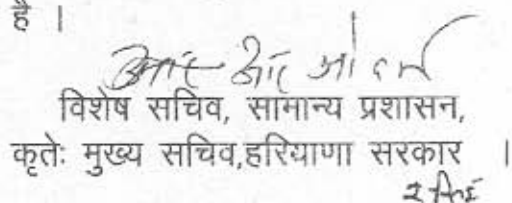 है ।
विशेष सचिव, सामान्य प्रशासन,
कृतेः मुख्य सचिव,हरियाणा सरकार ।